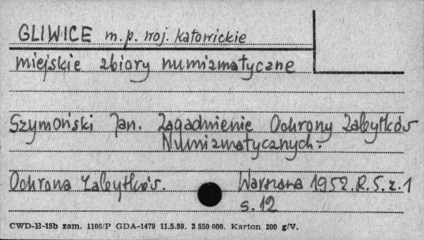 GLIWICE m.p. woj. katowickie
miejskie zbiory numizmatyczne
Szymoński Jan. Zagadnienie Ochrony Zabytków
Numizmatycznych.
Ochrona Zabytków. Warszawa 1952. R.5. z.1
s.12
CWD-B-15b zam. 1106/P GDA-1479 11.5.59. 2 550 000. Karton 200 g/V.